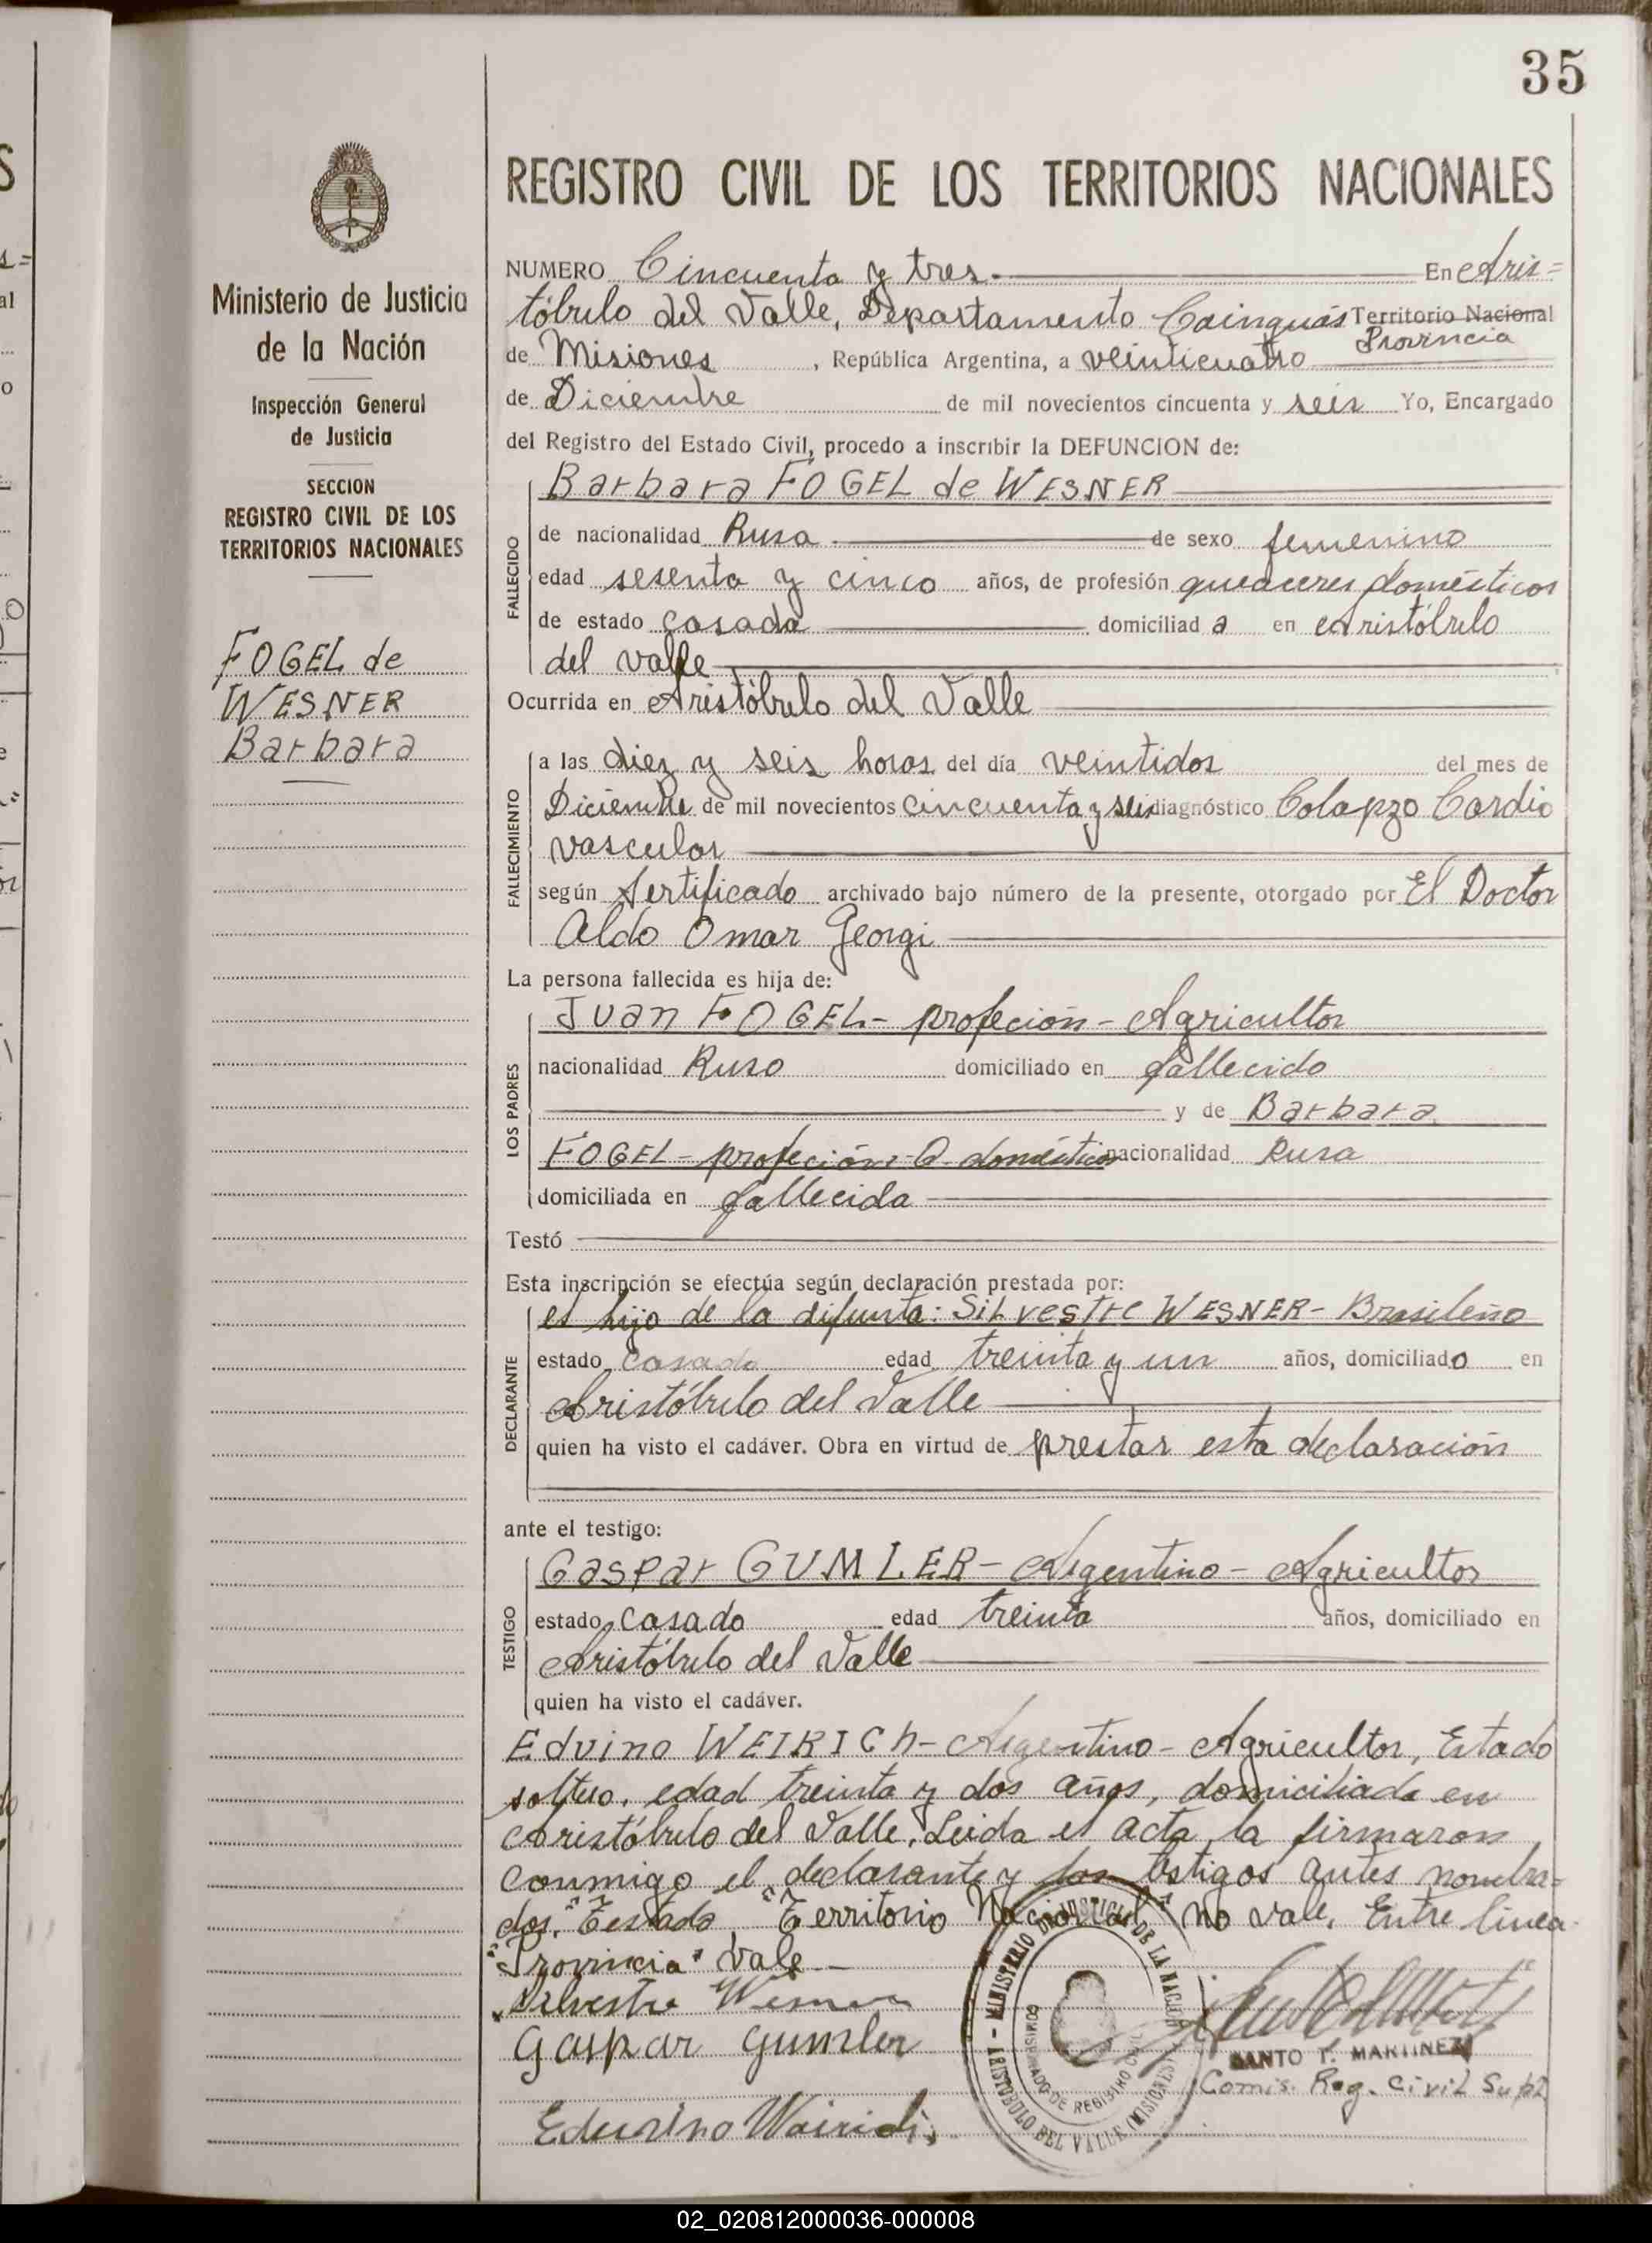 35
Ministerio de Justicia
de la Nación
Inspección General
de Justicia
SECCION
REGISTRO CIVIL DE LOS
TERRITORIOS NACIONALES
FOGEL de
WESNER
Barbara
REGISTRO CIVIL DE LOS TERRITORIOS NACIONALES
NUMERO Cincuenta y tres. En Aris=
tóbulo del Valle, Departamento Cainguás Territorio Nacional
Provincia
de Misiones, República Argentina, a veinticuatro
de Diciembre de mil novecientos cincuenta y seis Yo, Encargado
del Registro del Estado Civil, procedo a inscribir la DEFUNCION de:
Barbara FOGEL de WESNER
FALLECIDO
de nacionalidad Rusa de sexo femenino
edad sesenta y cinco años, de profesión quaceres domésticos
de estado casada domiciliad a en Aristóbulo
del valle
Ocurrida en Aristóbulo del Valle
FALLECIMIENTO
a las diez y seis horas del día veintidos del mes de
Diciembre de mil novecientos cincuenta y seis diagnóstico Colapzo Cardio
vascular
según Sertificado archivado bajo número de la presente, otorgado por El Doctor
Aldo Omar Georgi
La persona fallecida es hija de:
LOS PADRES
Juan FOGEL- profecion - Agricultor
nacionalidad Ruso domiciliado en fallecido
y de Barbara
FOGEL - profeción - Q. domésticos nacionalidad Rusa
domiciliada en fallecida
Testó
Esta inscripción se efectúa según declaración prestada por:
DECLARANTE
el hijo de la difunta: SILvestre WESNER- Brasileño
estado casado edad treinta y un años, domiciliado en
Aristóbulo del Valle
quien ha visto el cadáver. Obra en virtud de prestar esta declaración
ante el testigo:
TESTIGO
Gaspar GUMLER- Argentino - Agricultor
estado casado edad treinta años, domiciliado en
Aristóbulo del Valle
quien ha visto el cadáver.
Edvino WEIRICh- Argentino - Agricultor, Estado
soltero, edad treinta y dos años, domiciliado en
Aristóbulo del Valle, Leida el acta, la firmaron
conmigo el declarante y los testigos antes nombra=
dos. Testado "Territorio Nacional" no vale. Entre linea
"Provincia" Vale
Silvestre Wesner
Gaspar Gumler
MINISTERIO DE JUSTICIA DE LA NACION
COMISARIADO DE REGISTRO CIVIL
ARISTOBULO DEL VALLE (MISIONES)
SANTO T. MARTINEZ
Comis. Reg. Civil Supl.
02_020812000036-000008